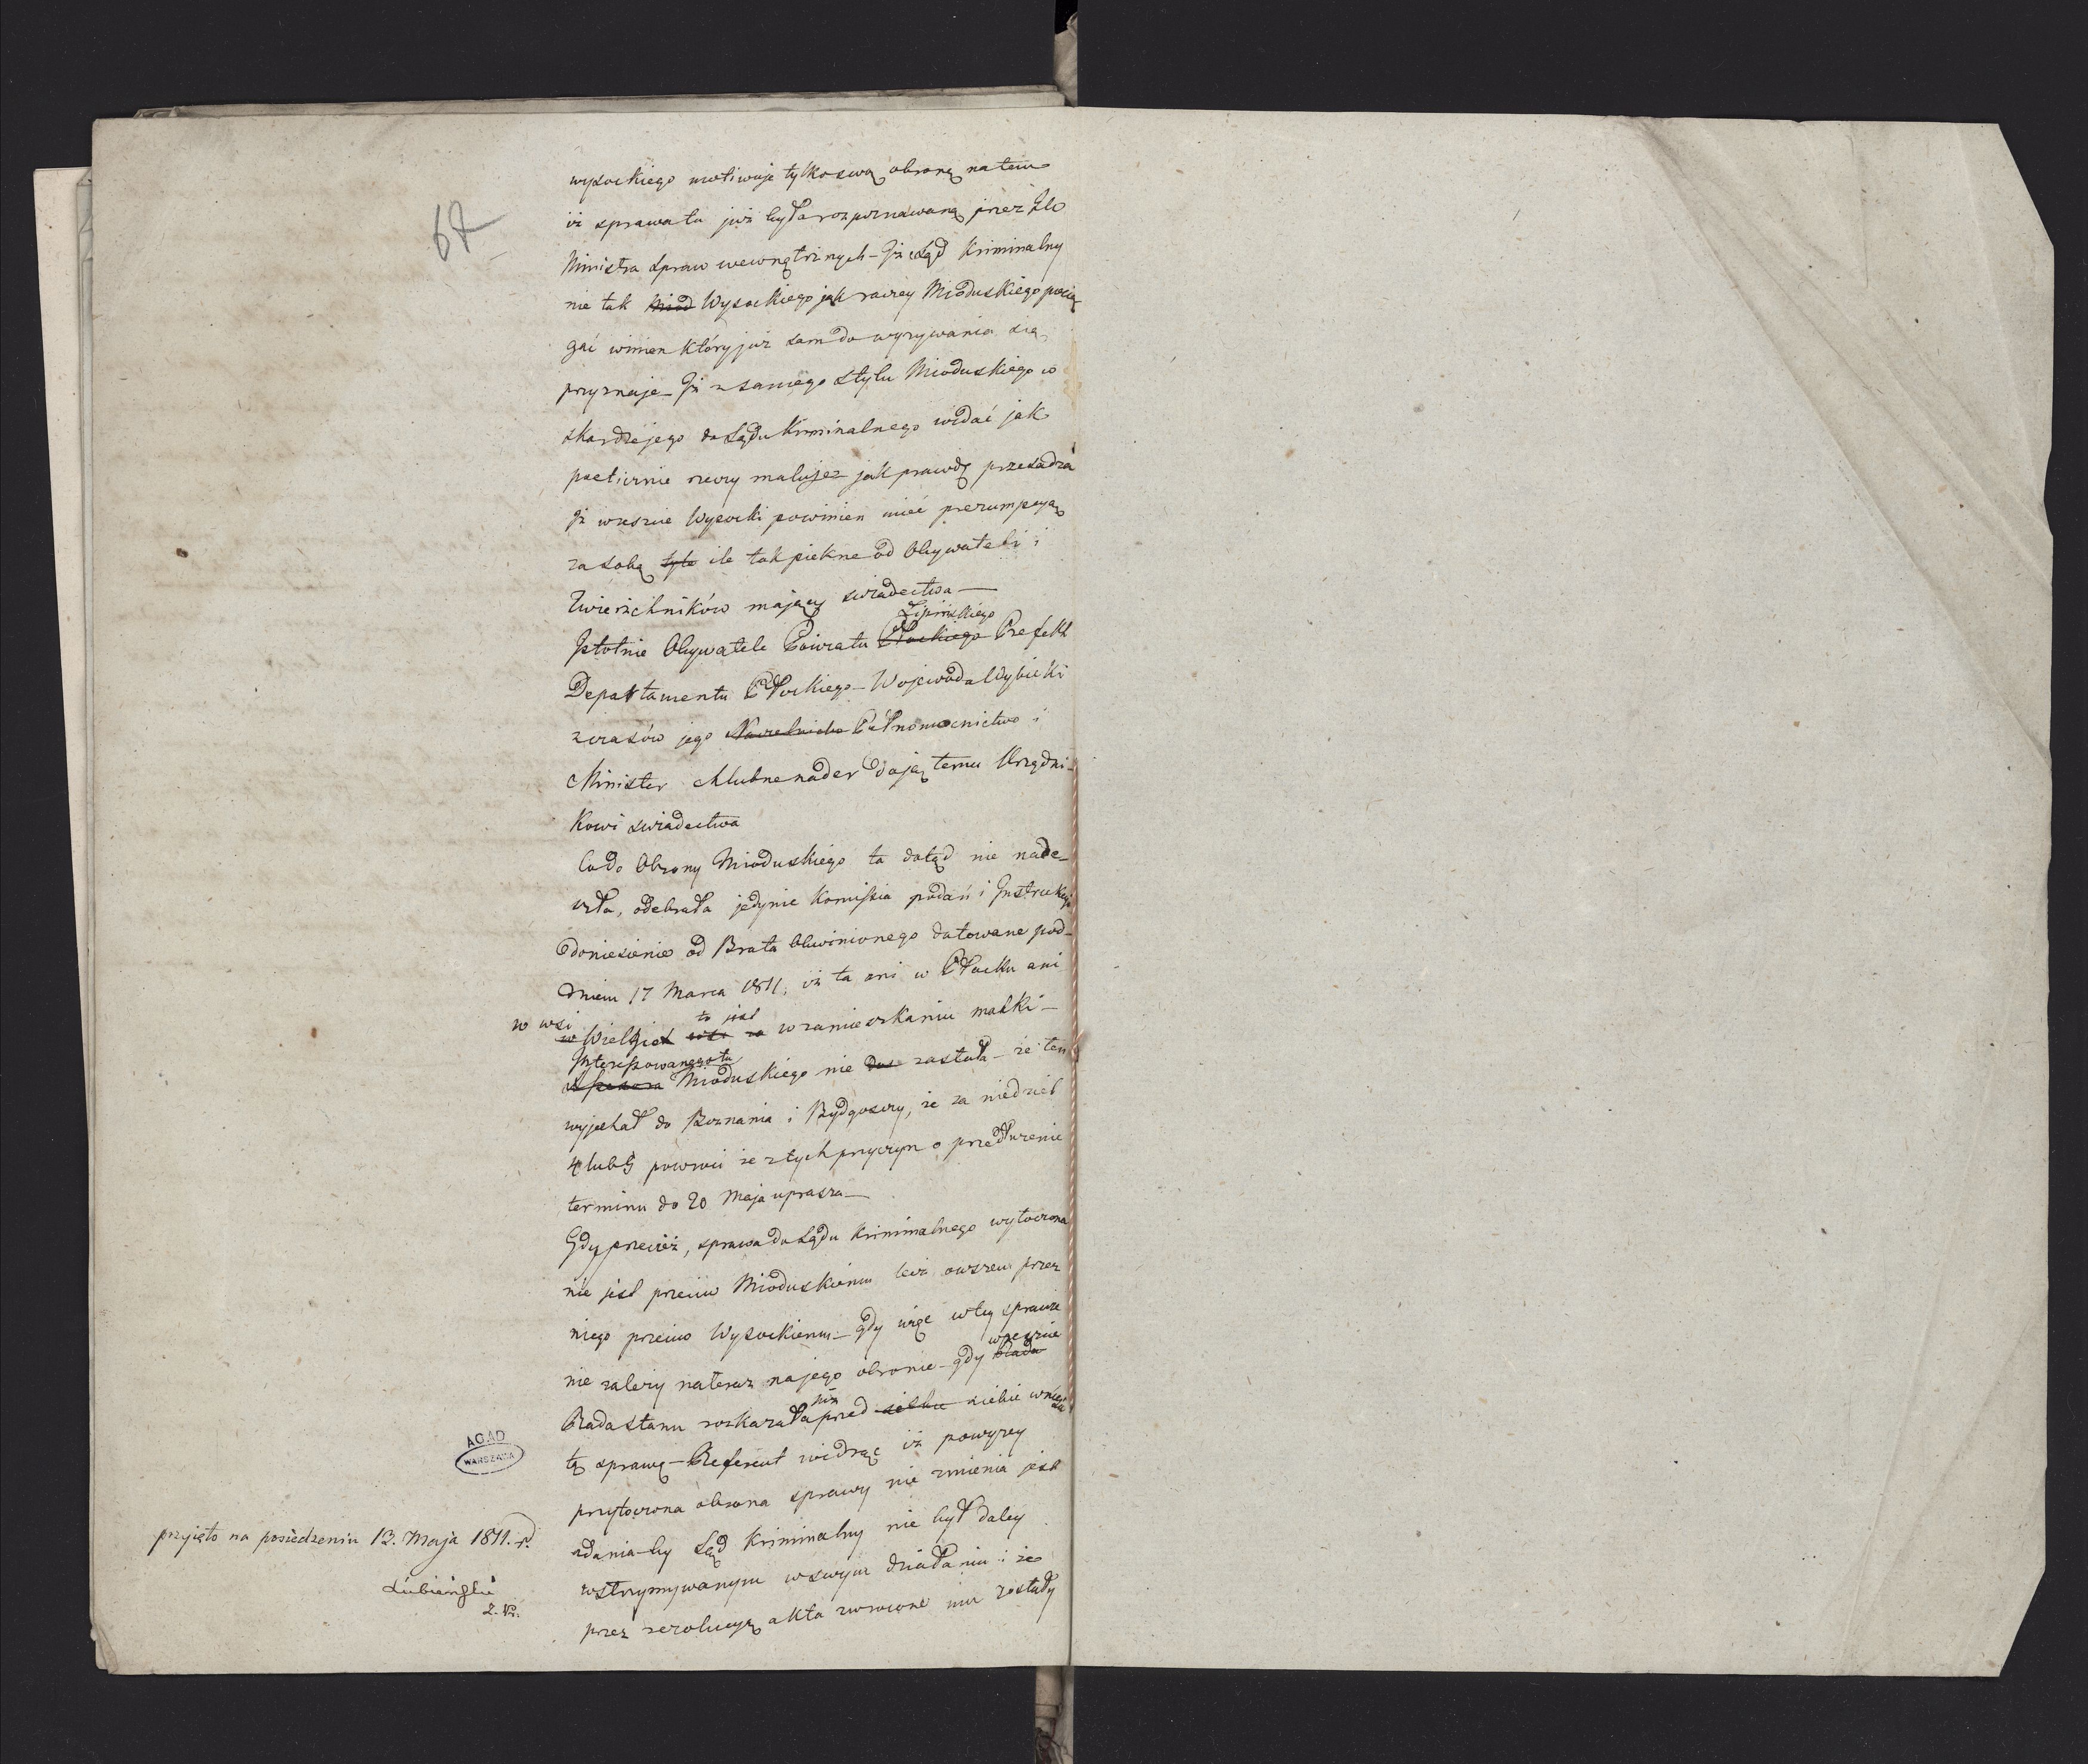 67
wysockiego motiwuje tylko swą obronę na tem
iż sprawa ta już była rozpoznawaną przez
Ministra Spraw wewnętrznych – Iż Sąd Kriminalny
nie tak Miod Wysockiego jak raczey Mioduskiego pocią
gać winien który już sam do wyzywania się
przyznaje – Iż z samego stylu Mioduskiego w
skardze jego do Sądu Kriminalnego widać jak
poeticznie rzeczy maluje z jak prawdę przesadza
Iż wreszcie Wysocki powinien mieć prezumpcyą
za sobą tyle ile tak piekne od Obywateli i
Zwierzchników mający swiadectwa —
Lipińskiego
Istotnie Obywatele Powiatu Płockiego Prefekt
Departamentu Płockiego – Wojewoda Wybicki
z czasów jego Pełnomocnictwa i
Minister chlubne nader dają temu Urzędni-
kowi swiadectwa
Co do Obrony Mioduskiego ta dotąd nie nade-
szła, odebrała jedynie Komissia podań i Instrukcyi
doniesienie od Brata Obwinionego datowane pod
dniem 17 Marca 1811, iż ta ani w Płocku ani
w wsi to jest
w Wielgiek w zamieszkaniu matki –
Interessowanego tu
Assessora Mioduskiego nie zastała – że ten
wyjechał do Poznania i Bydgoszczy, że za niedziel
4 lub 5 powroci że z tych przyczyn o przedłużenie
terminu do 20 Maja uprasza —
Gdy przecież, sprawa do Sądu Kriminalnego wytoczona
nie jest przeciw Mioduskiemu lecz owszem przez
niego przeciw Wysockiemu – gdy więc w tey sprawie
nie zależy na teraz na jego obronie – gdy wręcznie Rada
już
Rada Stanu rozkazała przed siebie siebie wnieść
tę sprawę – Referent widząc iż powyżey
przytoczona obrona sprawy nie zmienia jest
zdania – by Sąd Kriminalny nie był daley
wstrzymywanym w swym działaniu i że
przez rezolucyą akta zwrocone mu zostały
AGAD
WARSZAWA
przyięto na posiedzeniu 13. Maja 1811. r.
Lubieński